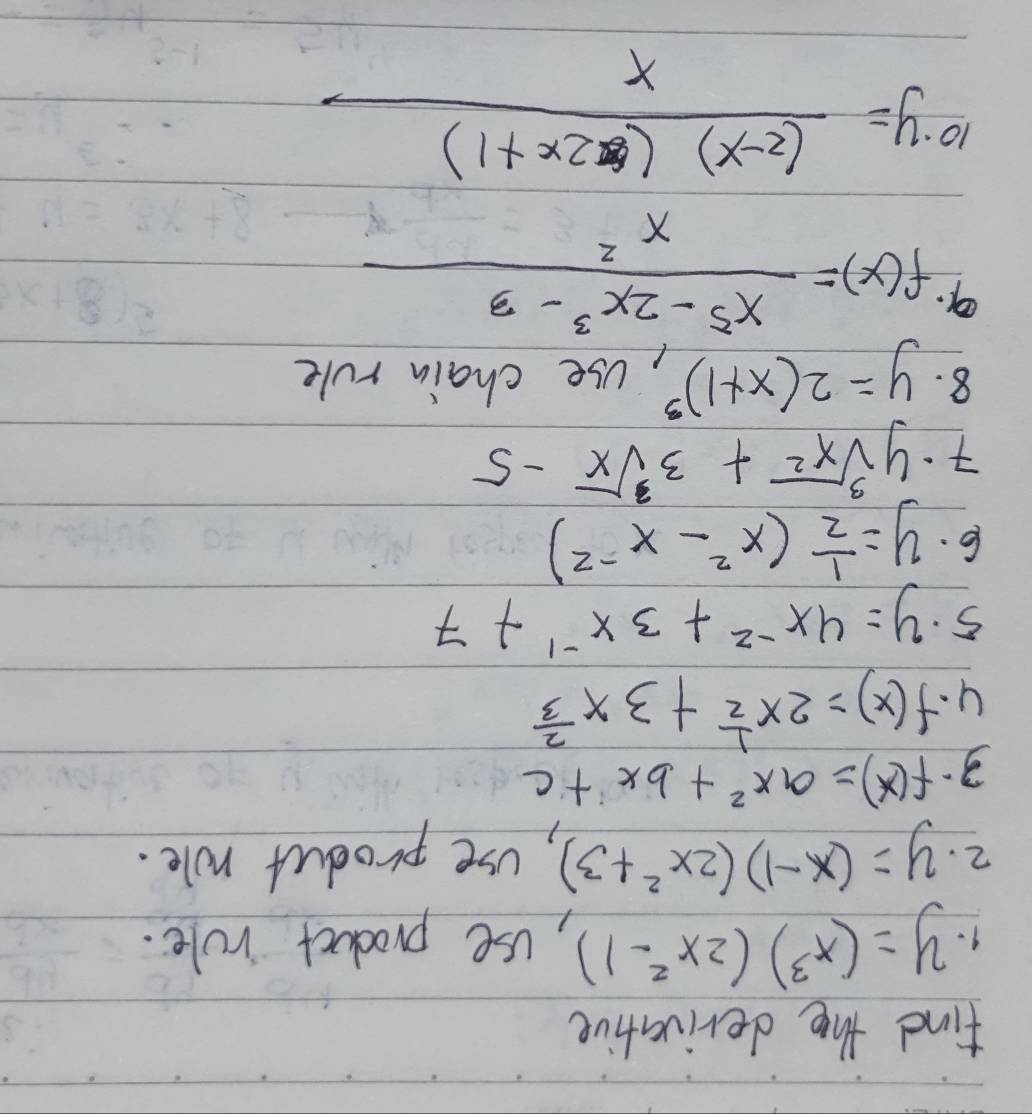 find the derivative
1. y = (x³) (2x² - 1), use product rule.
2. y = (x-1) (2x² + 3), use product rule.
3. f(x) = ax² + bx + c
4. f(x) = 2x^(1/2) + 3x^(2/3)
5. y = 4x⁻² + 3x⁻¹ + 7
6. y = 1/2 (x² - x⁻²)
7. y ∛x² + 3∛x - 5
8. y = 2(x+1)³, use chain rule
9. f(x) = (x⁵ - 2x³ - 3) / x²
10. y = (2-x) (2x+1) / x